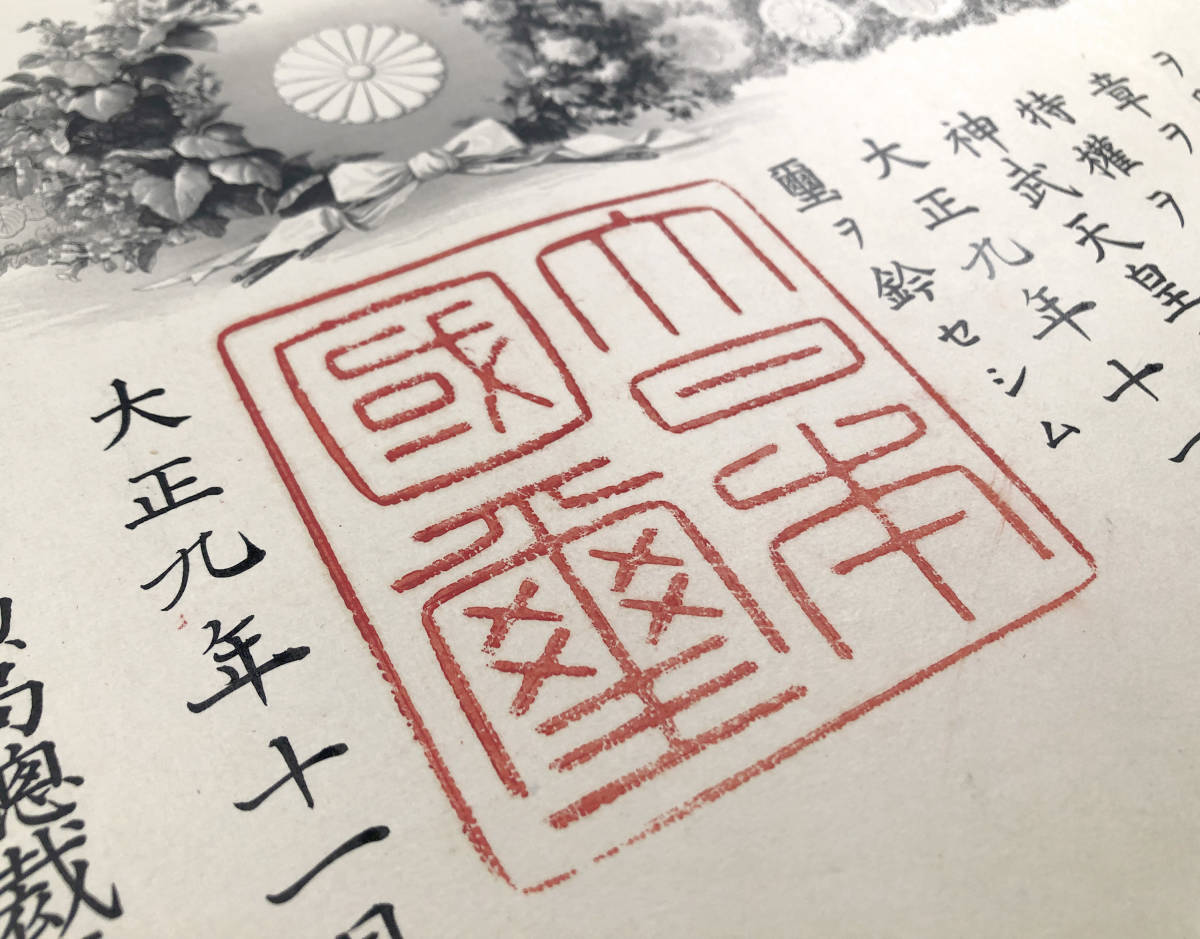 ヲ
章ヲ
特權ヲ
神武天皇
大正九年十一
璽ヲ鈐セシム
大日本
國璽
大正九年十一月
局總裁